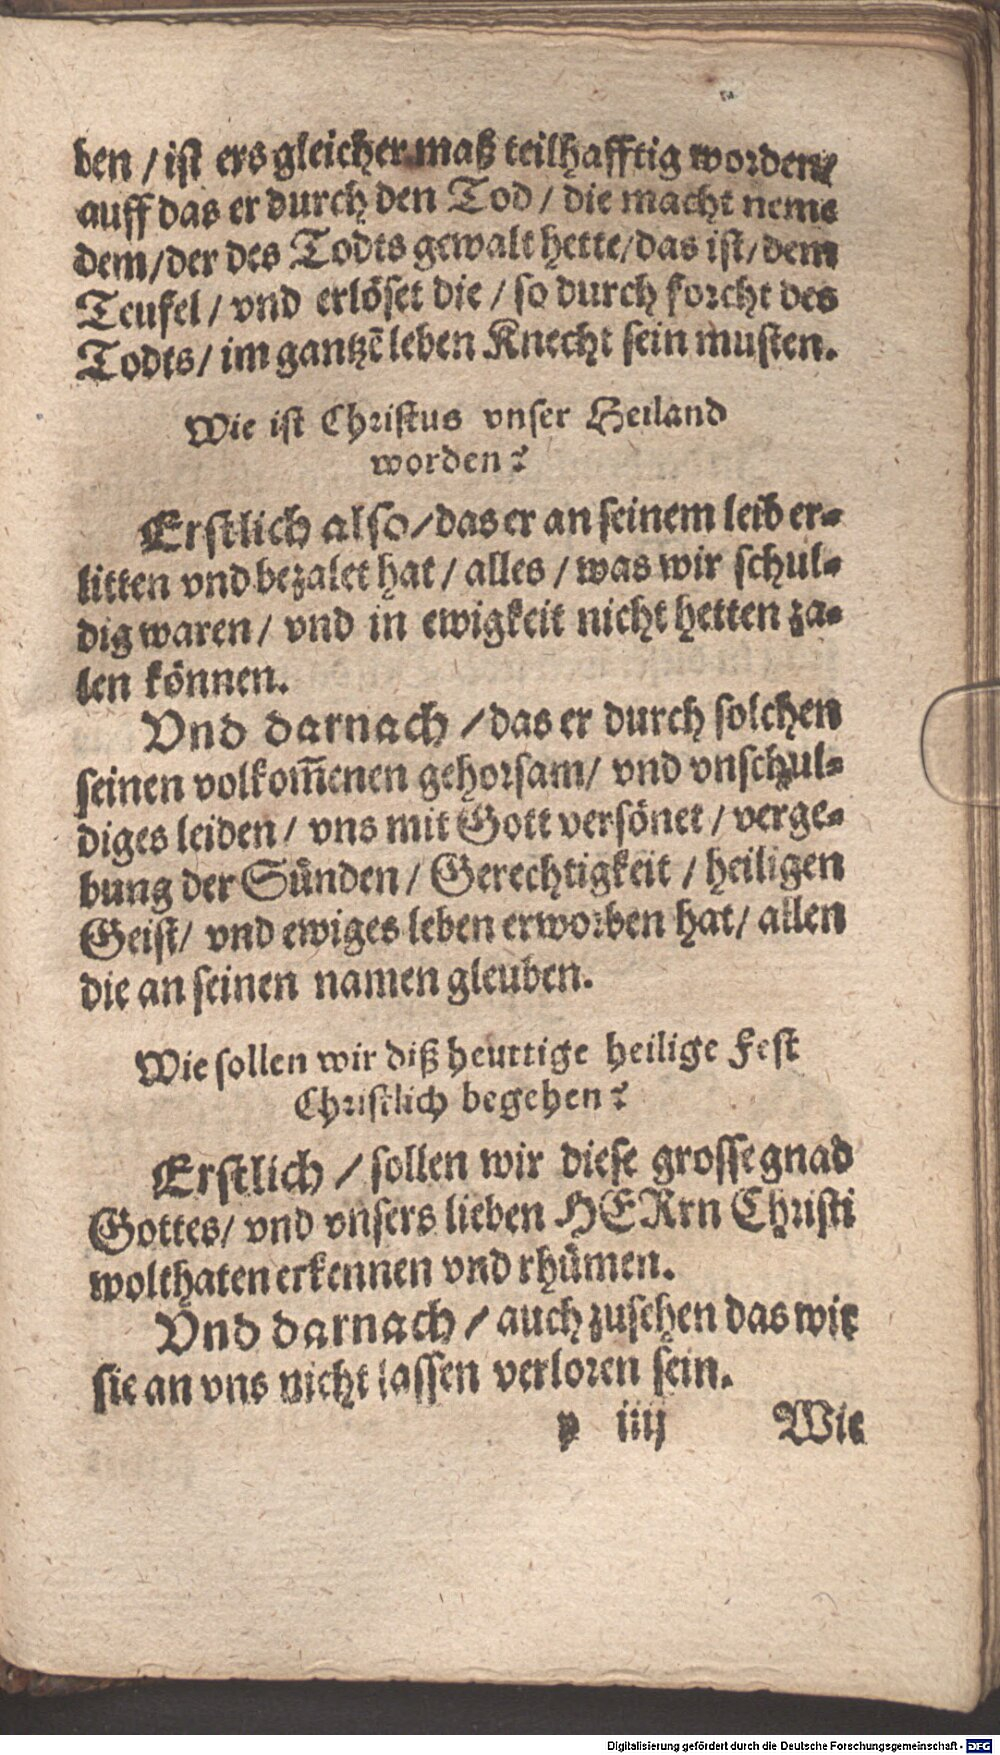 ben / ist ers gleicher maß teilhafftig worden/
auff das er durch den Tod / die macht neme
dem/der des Todts gewalt hette/das ist/dem
Teufel / vnd erlöset die / so durch forcht des
Todts/ im gantzẽ leben Knecht sein musten.
Wie ist Christus vnser Heiland
worden?
Erstlich also/das er an seinem leib er-
litten vnd bezalet hat / alles / was wir schul-
dig waren/ vnd in ewigkeit nicht hetten za-
len können.
Vnd darnach /das er durch solchen
seinen volkom̃enen gehorsam/ vnd vnschul-
diges leiden/ vns mit Gott versönet / verge-
bung der Sünden / Gerechtigkeit / heiligen
Geist/ vnd ewiges leben erworben hat/ allen
die an seinen namen gleuben.
Wie sollen wir diß heuttige heilige Fest
Christlich begehen?
Erstlich / sollen wir diese grosse gnad
Gottes/ vnd vnsers lieben HERrn Christi
wolthaten erkennen vnd rhümen.
Vnd darnach / auch zusehen das wir
sie an vns nicht lassen verloren sein.
y iiij Wie
Digitalisierung gefördert durch die Deutsche Forschungsgemeinschaft - DFG